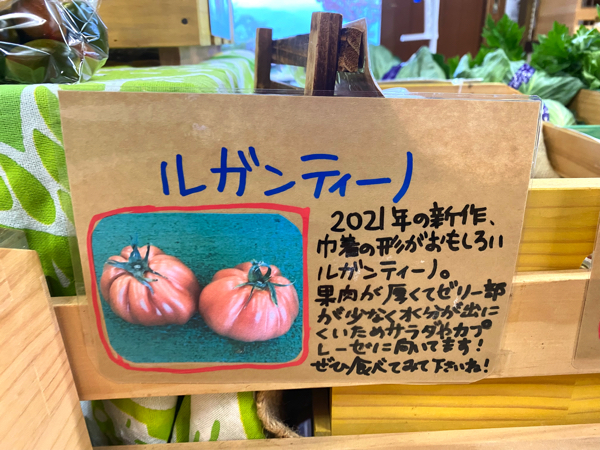 ルガンティーノ
2021年の新作、
巾着の形がおもしろい
ルガンティーノ。
果肉が厚くてゼリー部
が少なく水分が出に
くいためサラダやカプ
レーゼに向いてます!
ぜひ食べてみて下さいね!